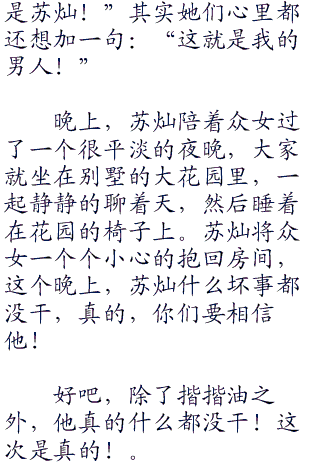 是苏灿！”其实她们心里都
还想加一句：“这就是我的
男人！”
晚上，苏灿陪着众女过
了一个很平淡的夜晚，大家
就坐在别墅的大花园里，一
起静静的聊着天，然后睡着
在花园的椅子上。苏灿将众
女一个个小心的抱回房间，
这个晚上，苏灿什么坏事都
没干，真的，你们要相信
他！
好吧，除了揩揩油之
外，他真的什么都没干！这
次是真的！。